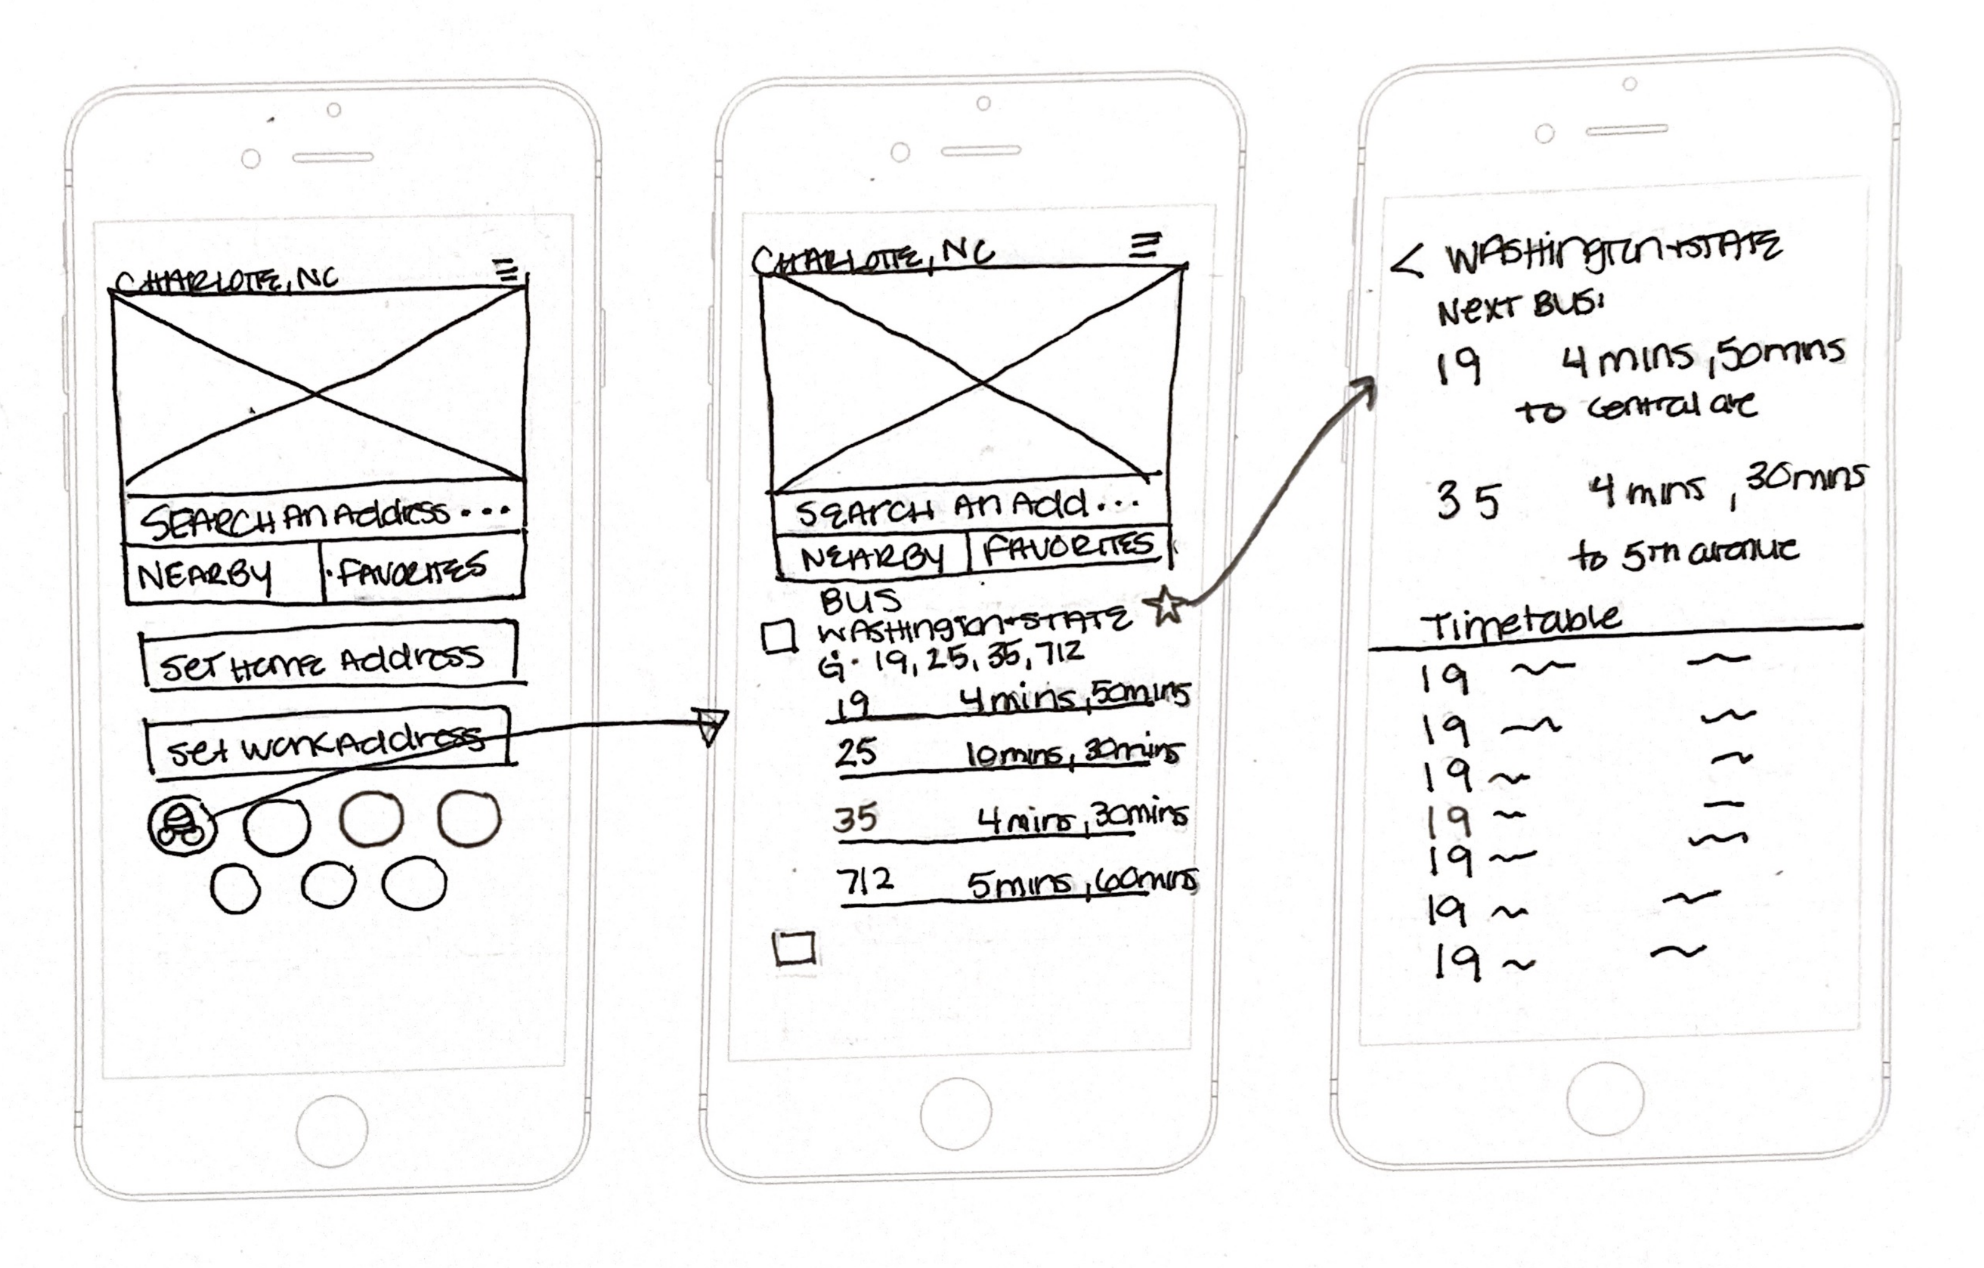 CHARLOTTE, NC
SEARCH AN Address...
NEARBY
FAVORITES
SET HOME Address
Set WORK Address
CHARLOTTE, NC
SEARCH AN Add...
NEARBY
FAVORITES
BUS
WASHington+STATE
G· 19, 25, 35, 712
19 4 mins, 50mins
25 10mins, 30mins
35 4 mins, 30mins
712 5mins, 60mins
< WASHington+STATE
NEXT BUS:
19 4 mins, 50mins
to central ave
35 4 mins, 30mins
to 5TH avenue
Timetable
19
19
19
19
19
19
19